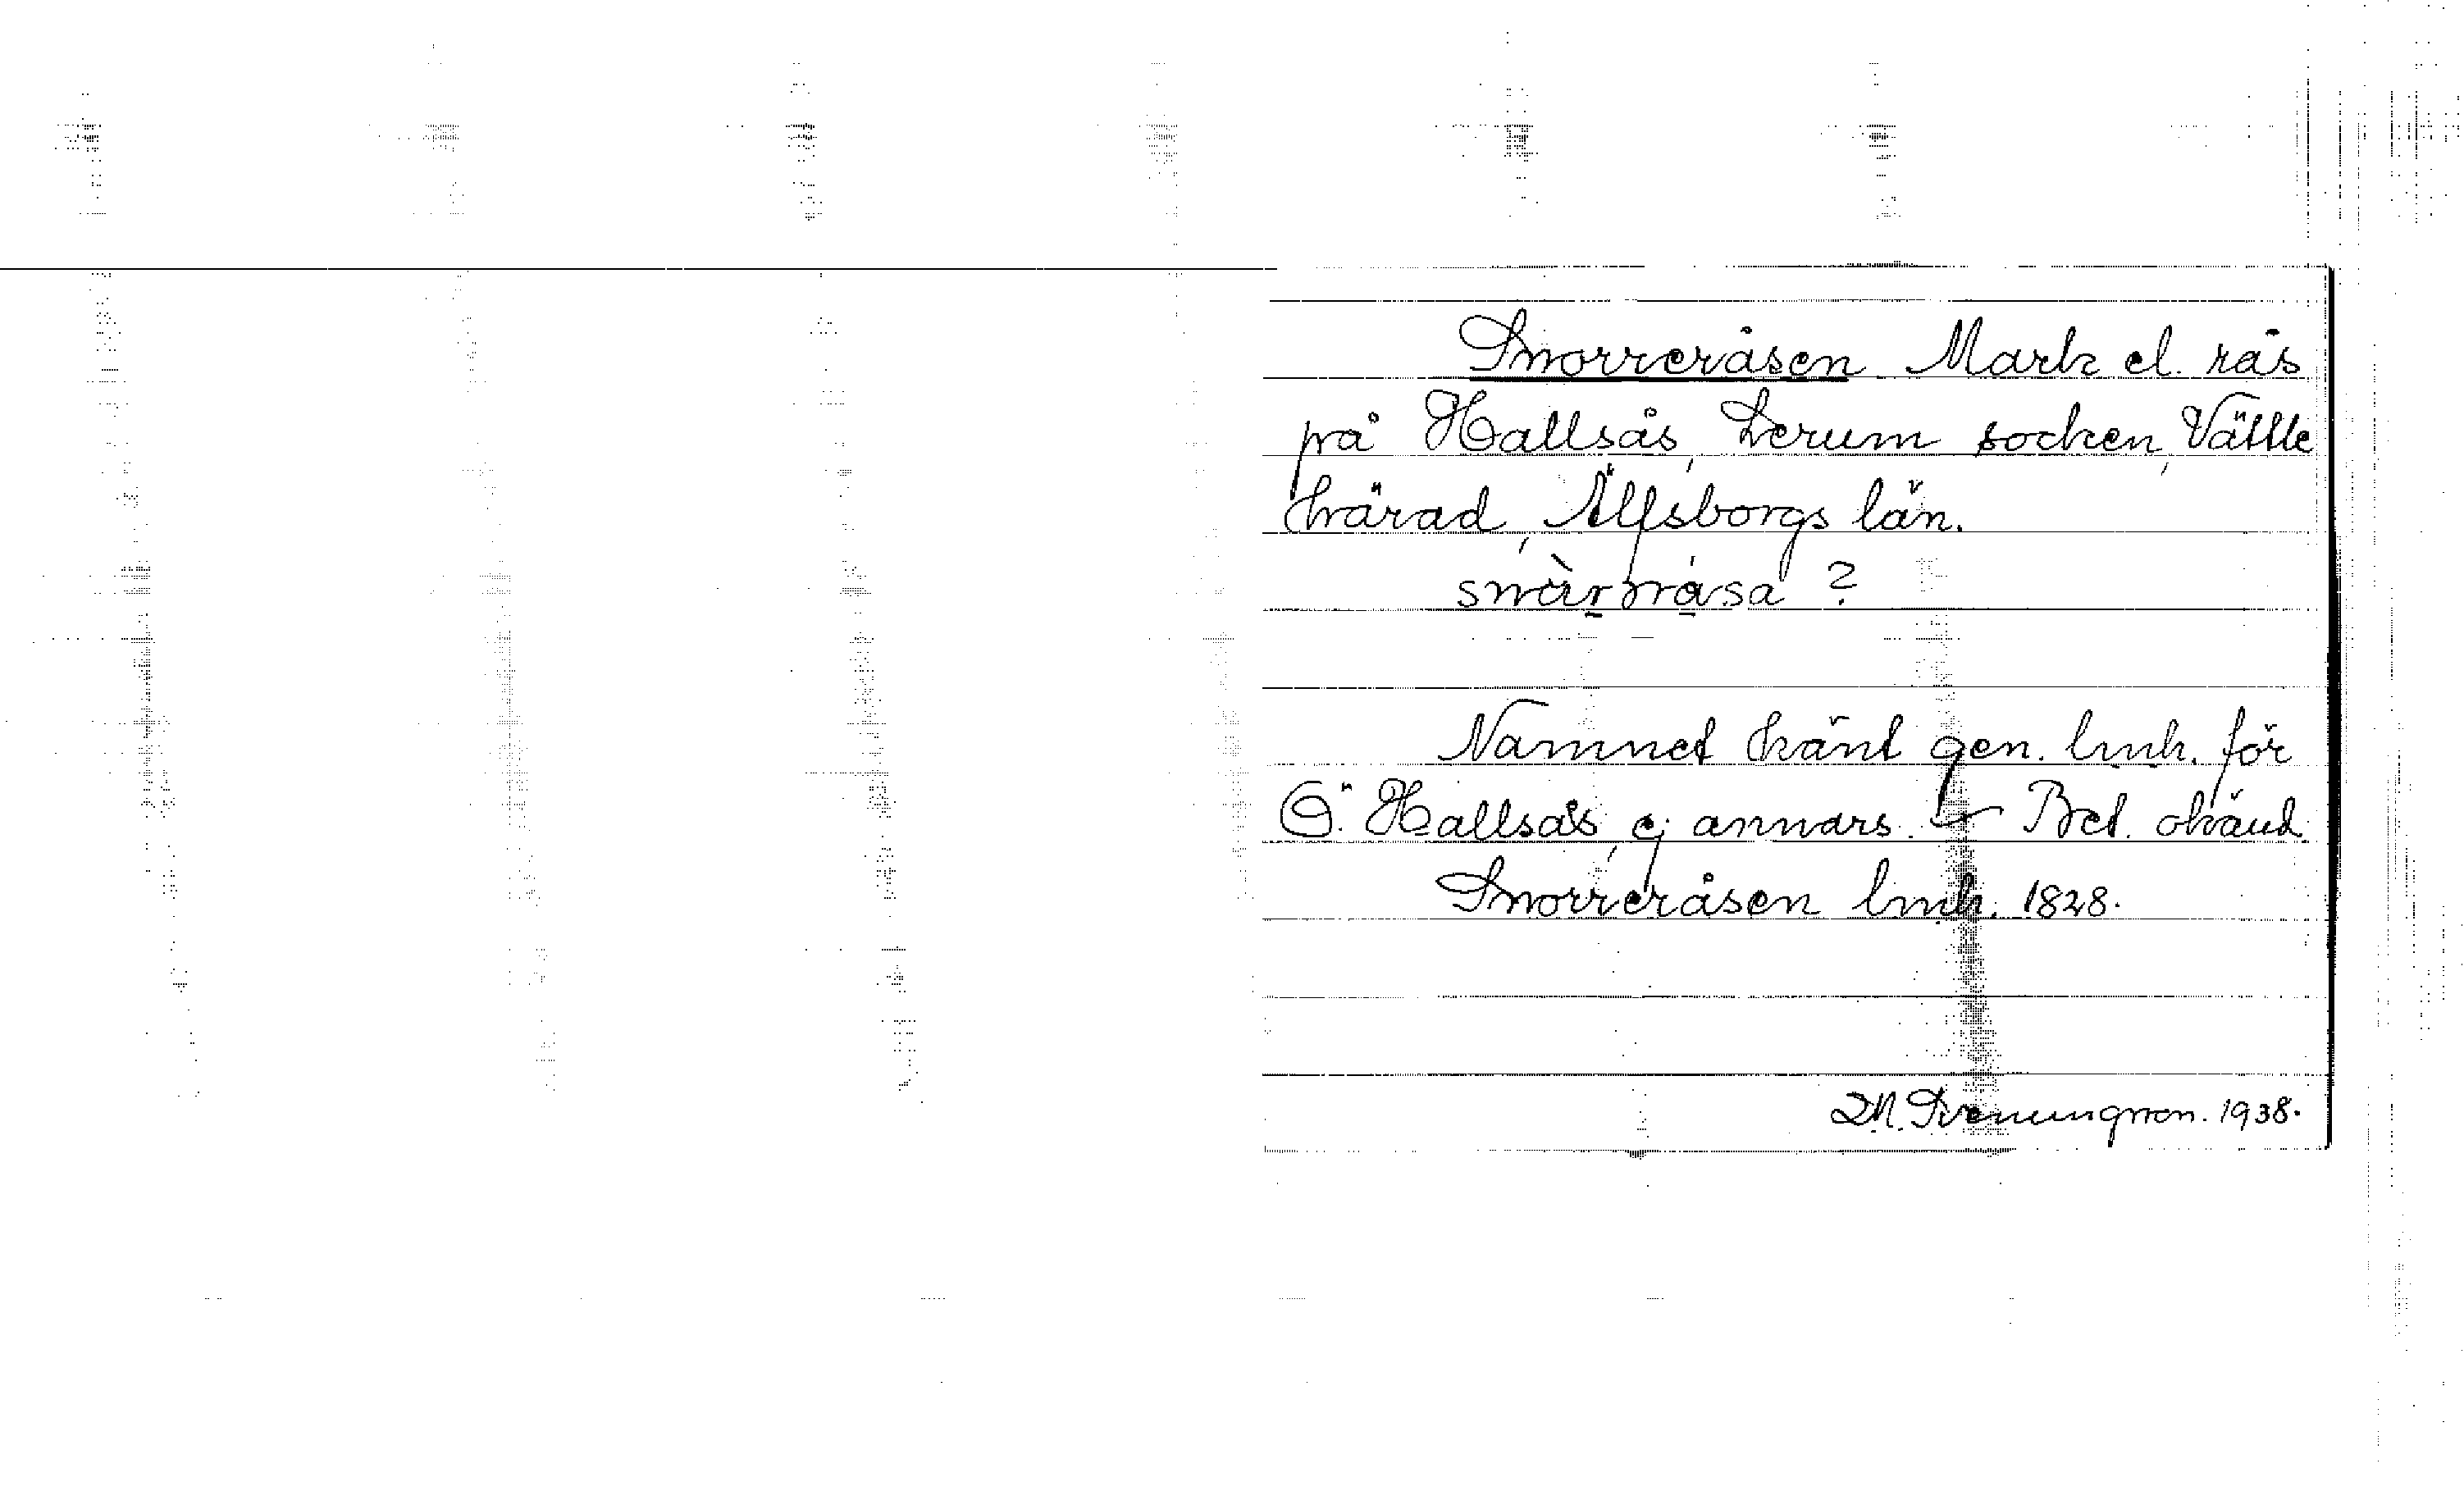 Snorreråsen Mark el. rås
på Hallsås, Lerum socken, Vättle
härad, Älfsborgs län.
Namnet känt gen. lmh. för
Ö. Hallsås, ej annars. – Bet. okänd
Snorreråsen lmh. 1828.
1938.